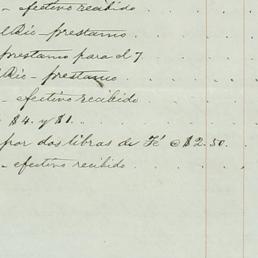 - efectivo recibido
Rio - prestamo
prestamo para el 7.
Rio - prestamo
- efectivo recibido
$4. y $1.
por dos libras de Té @ $2.50.
- efectivo recibido